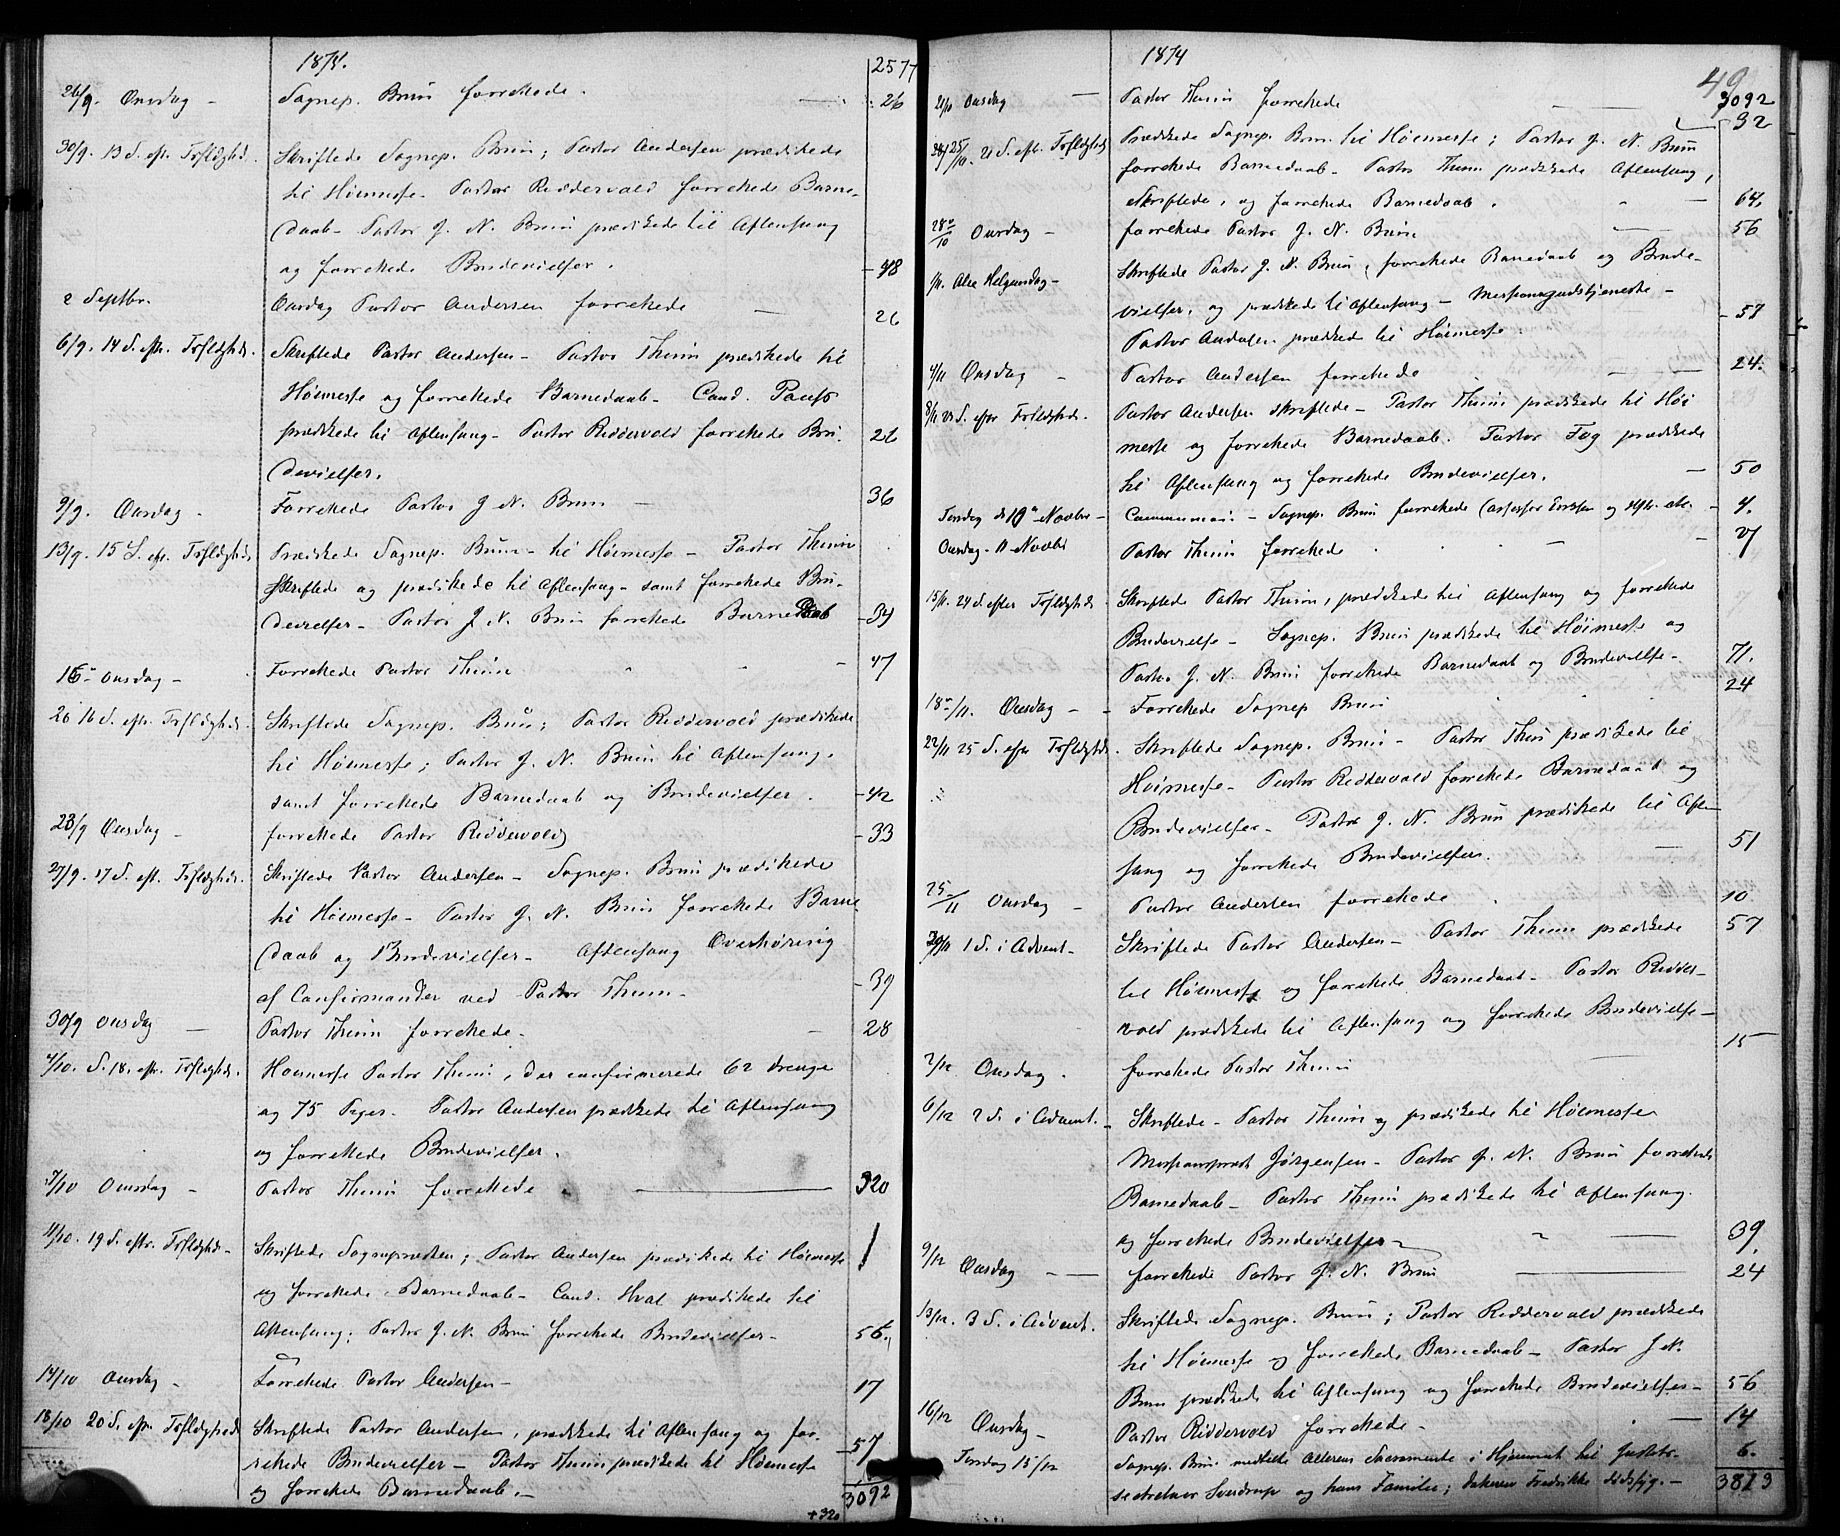 1874.
2577
26/9. Onsdag - Sognep. Bruun forrettede. 26
30/9. 13 S. eft. Trefoldighed. Skriftede Sognep. Bruun; Pastor Andersen prædikede
til Høimesse - Pastor Riddervold forrettede Barne-
daab - Pastor J. N. Bruun prædikede til Aftensang
og forrettede Brudevielser. - 48
2 Septbr. Onsdag Pastor Andersen forrettede - 26
6/9. 14 S. eftr. Trefoldighed. Skriftede Pastor Andersen - Pastor Thurn prædikede til
Høimesse og forrettede Barnedaab - Cand.
prædikede til Aftensang - Pastor Riddervold forrettede Bru- 26
devielser.
9/9. Onsdag - Forrettede Pastor J. N. Bruun - 36
13/9. 15 S. eftr. Trefoldighed. Prædikede Sognep. Bruun - til Høimesse - Pastor Thurn
Skriftede og prædikede til Aftensang - samt forrettede Bru-
devielser - Pastor J. N. Bruun forrettede Barnedaab - 34
16 - Onsdag - Forrettede Pastor Thurn - 47
20 16 S. eftr. Trefoldighed. Skriftede Sognep. Bruun; Pastor Riddervold prædikede
til Høimesse; Pastor J. N. Bruun til Aftensang,
samt forrettede Barnedaab og Brudevielser. - 42
23/9 Onsdag - forrettede Pastor Riddervold - 33
27/9. 17 S. eft. Trefoldighed. Skriftede Pastor Andersen - Sognep. Bruun prædikede
til Høimesse - Pastor J. N. Bruun forrettede Barne
daab og Brudevielser - Aftensang Overhøring
af Confirmander ved Pastor Thurn - 39
30/9 Onsdag - Pastor Thurn forrettede - 28
4/10. S. 18. eftr. Trefoldighed. Høimesse Pastor Thurn, der confirmerede 62 Drenge
og 75 Piger. Pastor Andersen prædikede til Aftensang
og forrettede Brudevielser.
7/10 Onsdag - Pastor Thurn forrettede 320
11/10. 19 S. eftr. Trefoldighed - Skriftede Sognepræsten; Pastor Andersen prædikede til Høimesse
og forrettede Barnedaab - Cand. Hval prædikede til
Aftensang; Pastor J. N. Bruun forrettede Brudevielser - 56.
14/10 Onsdag - Forrettede Pastor Andersen - 17
18/10 20 S. eftr. Trefoldighed Skriftede Pastor Andersen, prædikede til Aftensang og for-
rettede Brudevielser - Pastor Thurn prædikede til Høimesse - 57
og forrettede Barnedaab. -
3092
+320
1874
49
3092
21/10 Onsdag - Pastor Thurn forrettede 32
25/10. 21 S. eft. Trefoldighed Prædikede Sognep. Bruun til Høimesse; Pastor J. N. Bruun
forrettede Barnedaab - Pastor Thurn prædikede Aftensang,
Skriftede, og forrettede Barnedaab. 64.
28/10 Onsdag - forrettede Pastor J. N. Bruun 56
1/11. Alle Helgensdag - Skriftede Pastor J. N. Bruun, forrettede Barnedaab og Brude-
vielser, og prædikede til Aftensang - Missionsgudstjeneste -
Pastor Andersen prædikede til Høimesse. - 57
4/11 Onsdag - Pastor Andersen forrettede 24.
8/11 23 S. eftr Trefoldighed. Pastor Andersen skriftede - Pastor Thurn prædikede til Høi
messe og forrettede Barnedaab. Pastor prædikede
til Aftensang og forrettede Brudevielser. 50
Tirsdag d. 10 Novbr - Communion - Sognep. Bruun forrettede 4.
Onsdag - 11 Novbr Pastor Thurn forrettede 27
15/11. 24 S. efter Trefoldighed. Skriftede Pastor Thurn, prædikede til Aftensang og forrettede
Brudevielse - Sognep. Bruun prædikede til Høimesse og
Pastor J. N. Bruun forrettede Barnedaab og Brudevielse - 71.
18/11. Onsdag - Forrettede Sognep Bruun 24
22/11 25 S. eftr Trefoldighed. Skriftede Sognep. Bruun - Pastor Thurn prædikede til
Høimesse - Pastor Riddervold forrettede Barnedaab og
Brudevielser - Pastor J. N. Bruun prædikede til Aften-
sang og forrettede Brudevielser. 51
25/11 Onsdag - Pastor Andersen forrettede 10
1 S. i Advent - Skriftede Pastor Andersen - Pastor Thurn prædikede 57
til Høimesse og forrettede Barnedaab - Pastor Ridder-
vold prædikede til Aftensang og forrettede Brudevielse -
2/12 Onsdag. forrettede Pastor Thurn 15
6/12 2 S. i Advent. - Skriftede - Pastor Thurn og prædikede til Høimesse
Missionsprest Jørgensen - Pastor J. N. Bruun forrettede
Barnedaab - Pastor Thurn prædikede til Aftensang.
og forrettede Brudevielser - 39.
9/12 Onsdag - forrettede Pastor J. N. Bruun 24
13/12. 3 S. i Advent. Skriftede Sognep. Bruun; Pastor Riddervold prædikede
til Høimesse og forrettede Barnedaab - Pastor J N.
Bruun prædikede til Aftensang og forrettede Brudevielser - 56
16/12 Onsdag - Pastor Riddervold forrettede - 14
Tirsdag 15/12 Sognep. Bruun meddelte Alterens Sacramente i Hjemmet til 6.
Sverdrup og hans Familie; Datteren Fredrikke dødssyg. -
3813